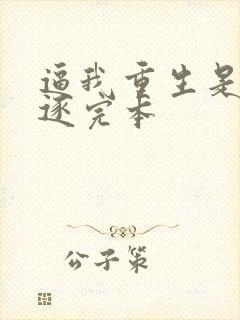 逼我重生是
逐完本
公子策